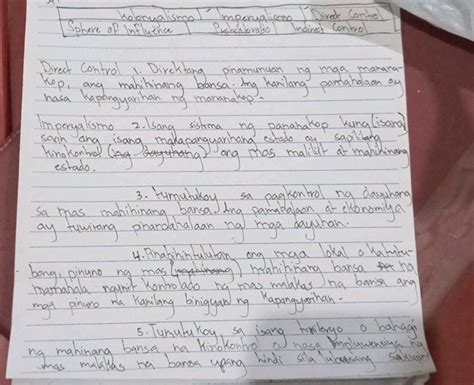 Kolonyalismo Imperyalismo Direct Control
Sphere of Influence Protektorado Indirect Control
Direct Control 1. Direktang pinamunuan ng mga manana-
kop, ang mahihinang bansa. Ang kanilang pamahalaan ay
nasa kapangyarihan ng mananakop.
Imperyalismo 2. Isang sistema ng pananakop kung (isang)
saan ang isang makapangyarihang estado ay sapilitang
kinokontrol ang mas maliit at mahihinang
estado.
3. tumutukoy sa pagkontrol ng dayuhang
sa mas mahihinang bansa. Ang pamahalaan at ekonomiya
ay tuwirang pinamamahalaan ng mga dayuhan.
4. Pinahihintulutan ang mga lokal o katutu-
bong, pinuno ng mas mahihinang bansa na
mamahala ngunit kontrolado ng mas malakas na bansa ang
mga pinuno na kanilang binigyan ng kapangyarihan.
5. Tumutukoy sa isang teritoryo o bahagi
ng mahinang bansa na kinokontrol o nasa impluwensiya ng
mas malakas na bansa upang hindi sila